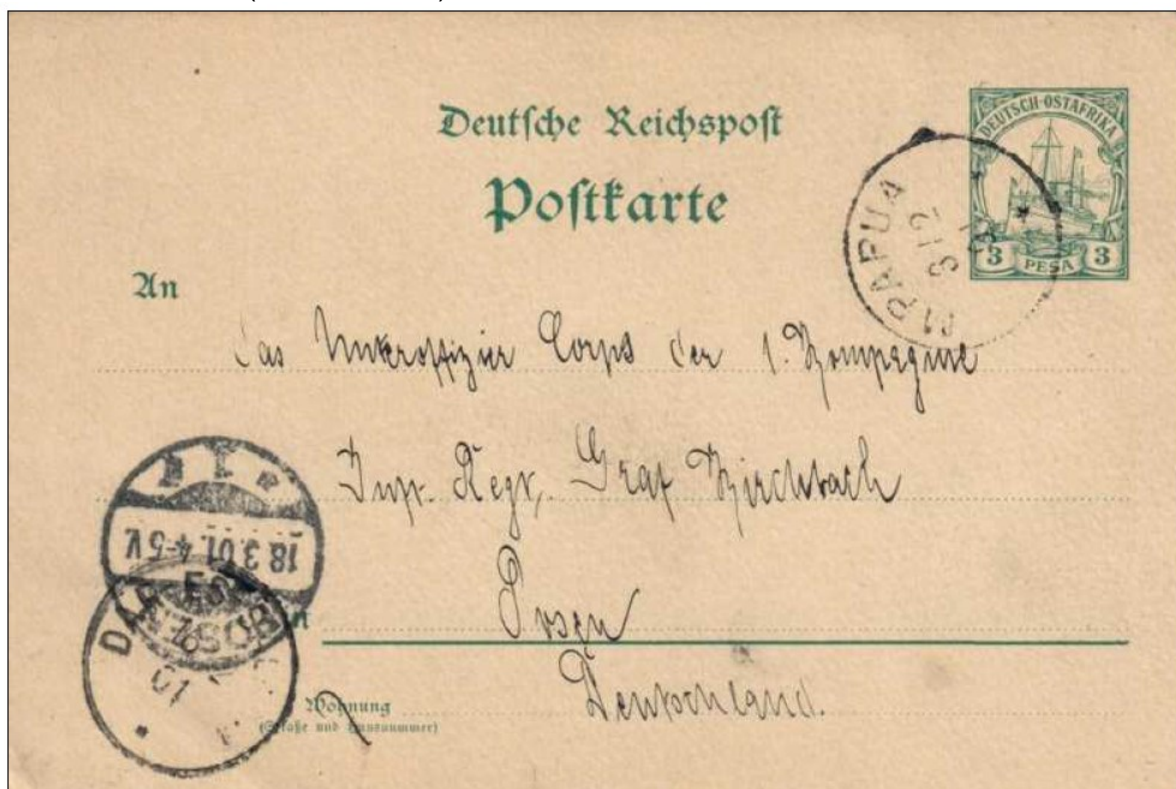 Deutsche Reichspost
Postkarte
DEUTSCH-OSTAFRIKA
3 PESA 3
MPAPUA
3/2
01
An
das Unteroffizier Corps der 1. Kompagnie
Inf. Regt. Graf Kirchbach
Posen
Deutschland.
18.3.01. 4-5 V.
POSEN
DAR-ES
01
Wohnung
(Straße und Hausnummer)